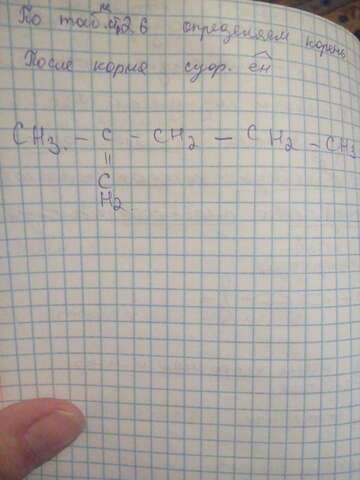 По табл. 26 определяем корень
После корня суф. ен
CH3. - C - CH2 - CH2 - CH3
=
C
H2.